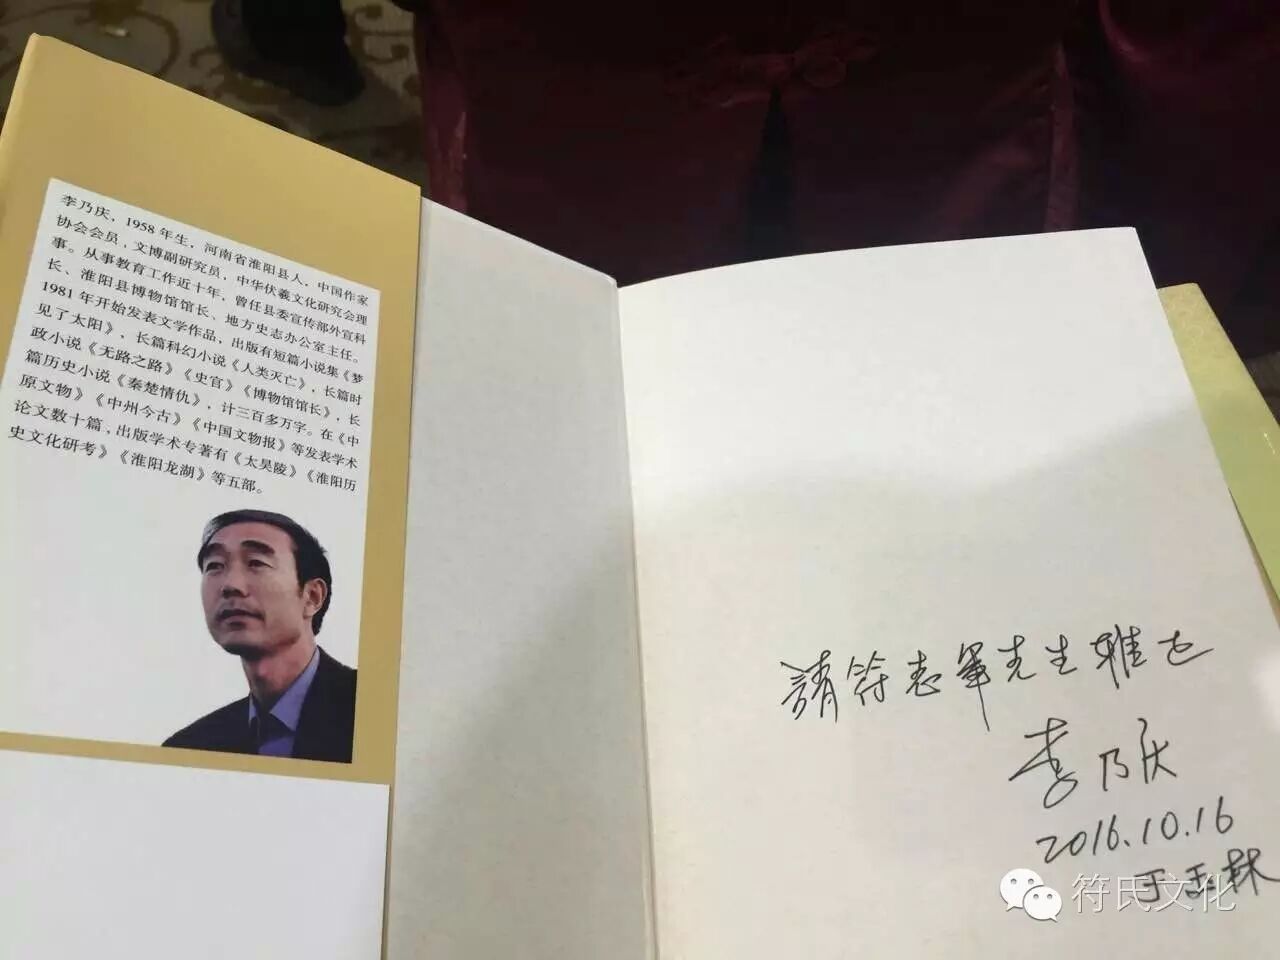 李乃庆，1958 年生，河南省淮阳县人，中国作家
协会会员，文博副研究员，中华伏羲文化研究会理
事。从事教育工作近十年，曾任县委宣传部外宣科
长、淮阳县博物馆馆长、地方史志办公室主任。
1981 年开始发表文学作品，出版有短篇小说集《梦
见了太阳》，长篇科幻小说《人类灭亡》，长篇时
政小说《无路之路》《史官》《博物馆馆长》，长
篇历史小说《秦楚情仇》，计三百多万字。在《中
原文物》《中州今古》《中国文物报》等发表学术
论文数十篇，出版学术专著有《太昊陵》《淮阳历
史文化研考》《淮阳龙湖》等五部。
請符志军先生雅正
李乃庆
2016.10.16
于玉林
符氏文化